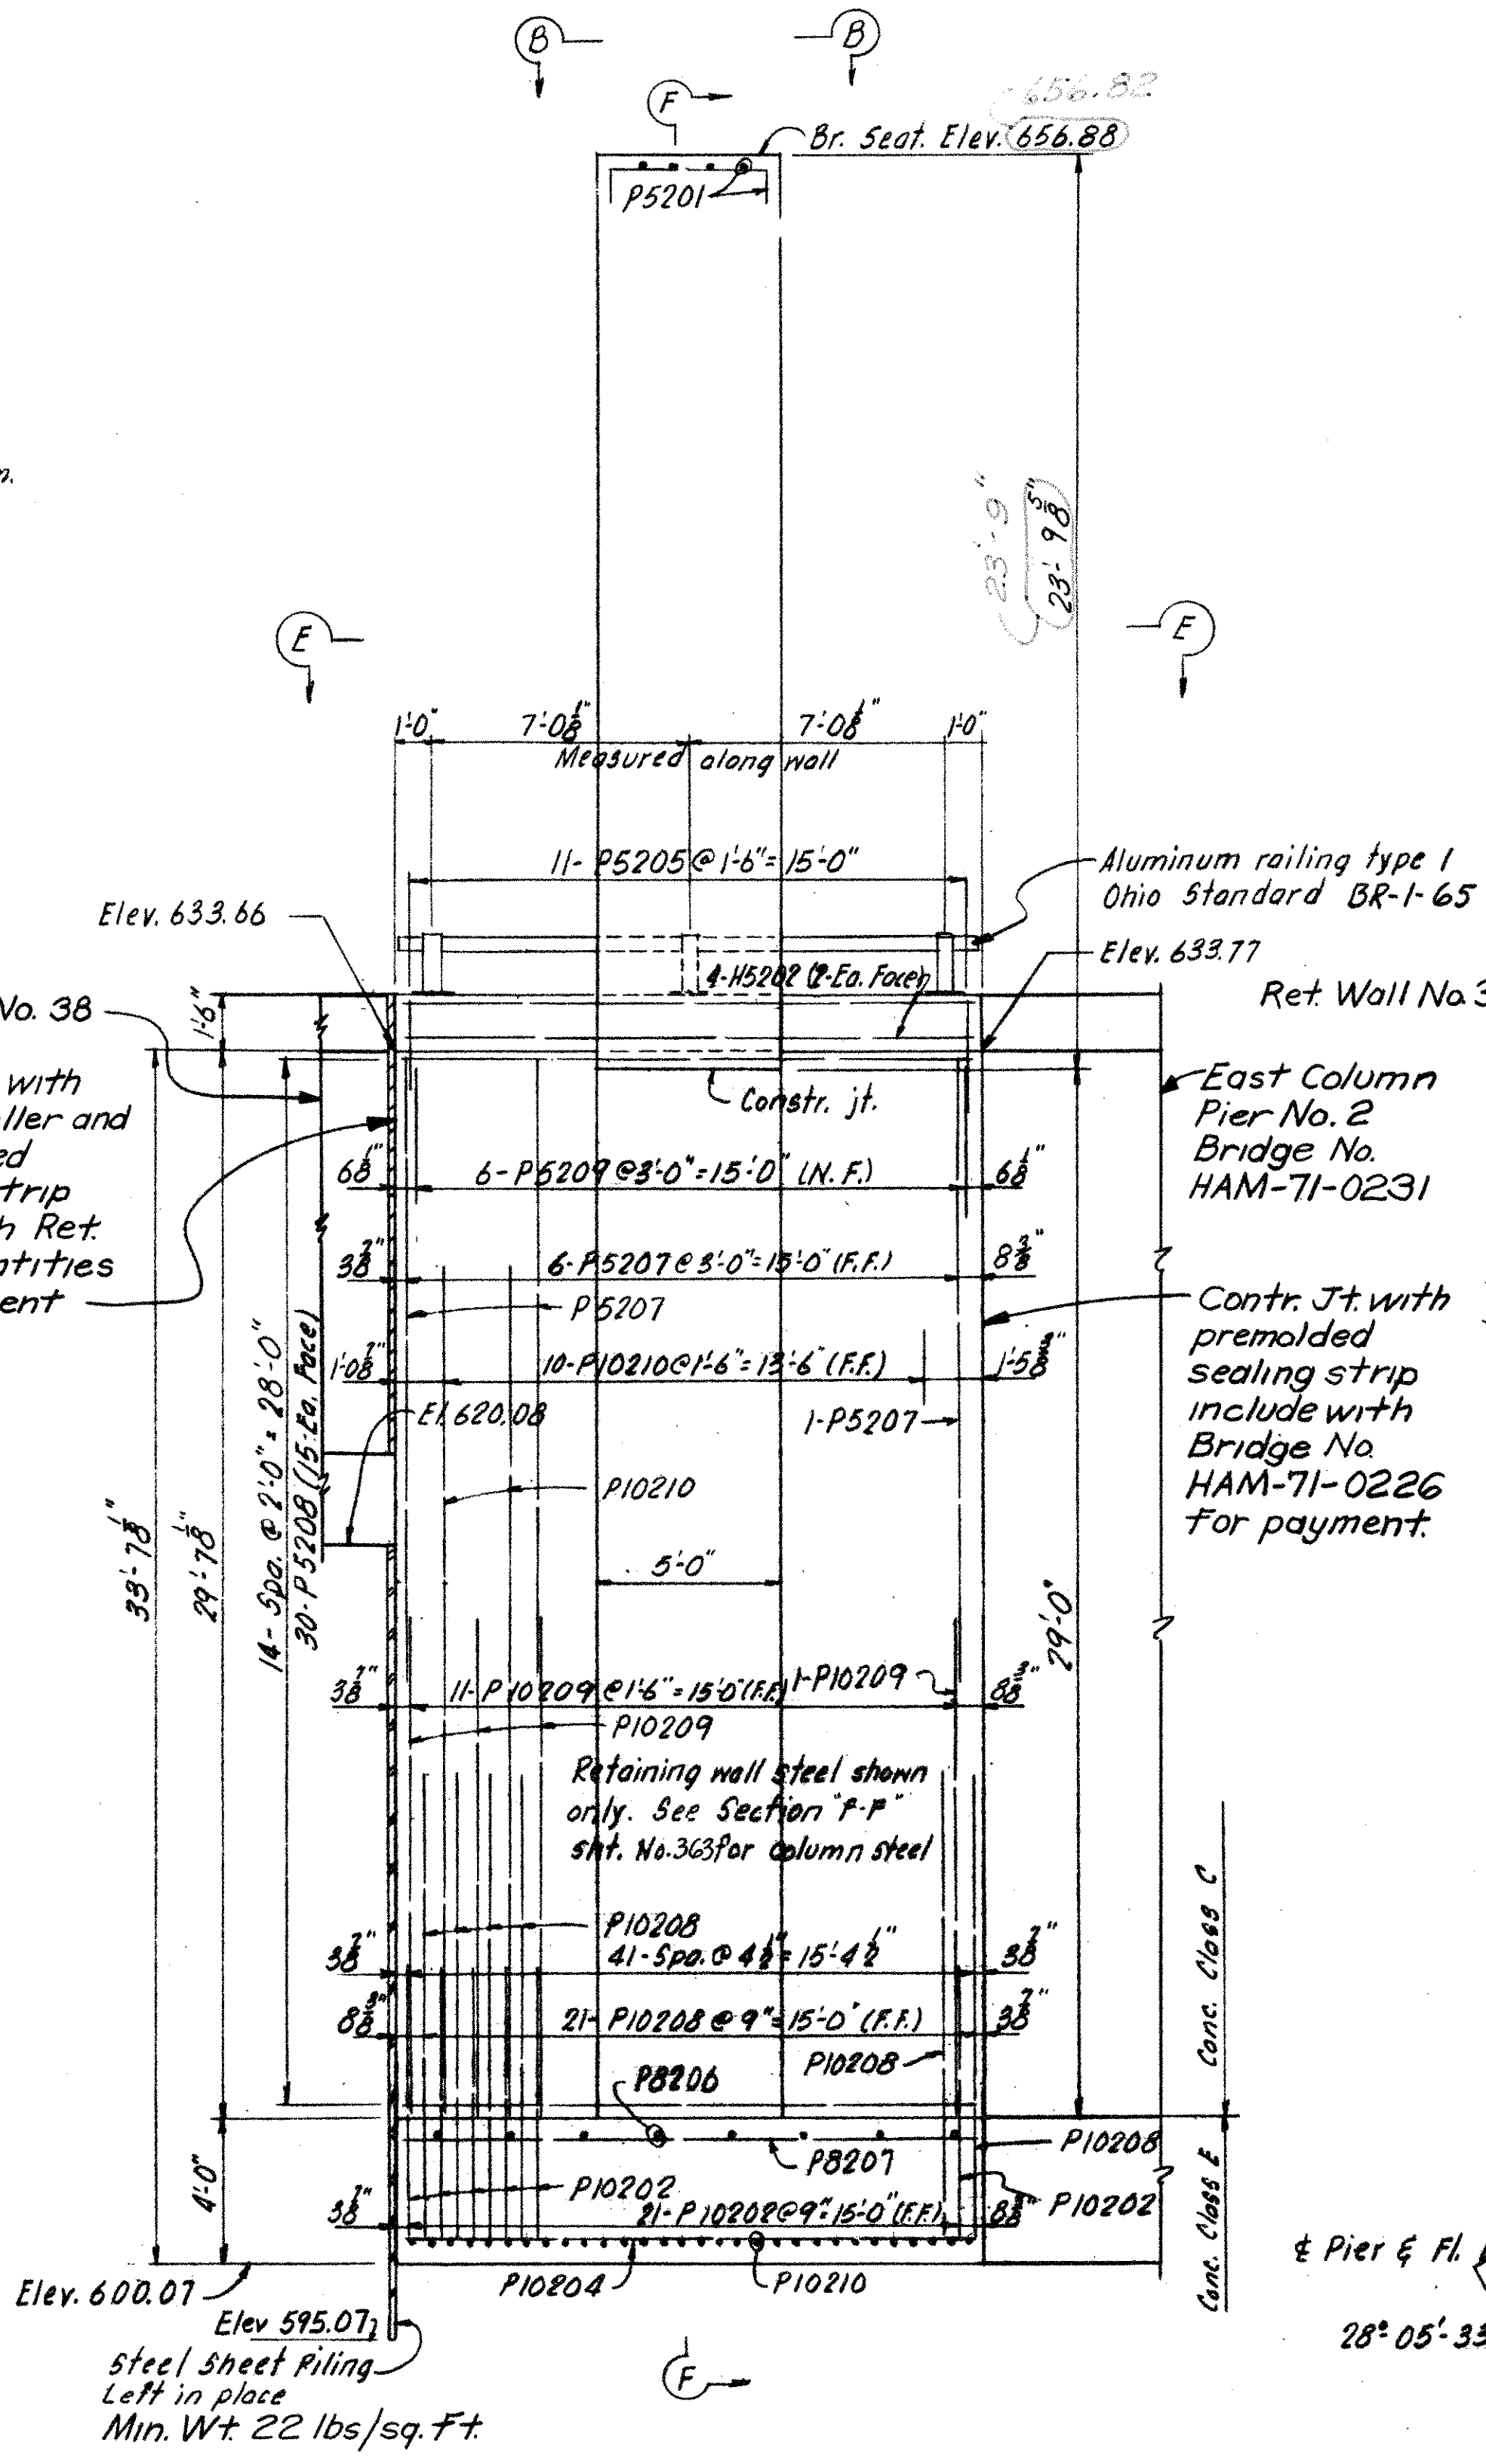 B
B
F
656.82
Br. Seat. Elev. 656.88
P5201
23'-9"
23'-9 5/8"
E
E
1'-0"
7'-0 1/8"
7'-0 1/8"
1'-0"
Measured along wall
11-P5205 @ 1'-6" = 15'-0"
Aluminum railing type 1
Ohio Standard BR-1-65
Elev. 633.66
4-H5202 (2-Ea. Face)
Elev. 633.77
No. 38
Ret. Wall No. 3
1'-6"
with
ller and
ed
trip
h Ret.
ntities
ent
Constr. jt.
East Column
Pier No. 2
Bridge No.
HAM-71-0231
6 1/8"
6-P5209 @ 3'-0" = 15'-0" (N.F.)
6 1/8"
3 7/8"
6-P5207 @ 3'-0" = 15'-0" (F.F.)
8 3/8"
P5207
Contr. Jt. with
premolded
sealing strip
include with
Bridge No.
HAM-71-0226
for payment.
1'-0 7/8"
10-P10210 @ 1'-6" = 13'-6" (F.F.)
El. 620.08
1-P5207
P10210
33'-7 1/8"
29'-7 1/8"
14-Spa. @ 2'-0" = 28'-0"
30-P5208 (15-Ea. Face)
5'-0"
29'-0"
3 7/8"
11-P10209 @ 1'-6" = 15'-0" (F.F.)
1-P10209
8 3/8"
P10209
Retaining wall steel shown
only. See Section "F-F"
sht. No. 363 for column steel
P10208
3 7/8"
41-Spa. @ 4 1/2" = 15'-4 1/2"
3 7/8"
8 3/8"
21-P10208 @ 9" = 15'-0" (F.F.)
3 7/8"
P10208
P8206
Conc. Class C
Conc. Class E
4'-0"
P8207
P10208
P10202
3 7/8"
21-P10202 @ 9" = 15'-0" (F.F.)
8 3/8"
P10202
P10204
P10210
Elev. 600.07
Elev 595.07
Steel Sheet Piling
Left in place
Min. Wt. 22 lbs/sq. ft.
F
℄ Pier & Fl.
28°-05'-33